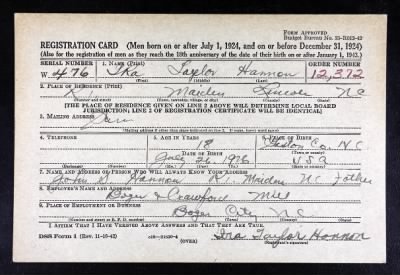 FORM APPROVED
Budget Bureau No. 33-R012-42
REGISTRATION CARD (Men born on or after July 1, 1924, and on or before December 31, 1924)
(Also for the registration of men as they reach the 18th anniversary of the date of their birth on or after January 1, 1943.)
SERIAL NUMBER 1. NAME (Print) ORDER NUMBER
W. 476 Ira Taylor Hannon 12,372
(First) (Middle) (Last)
2. PLACE OF RESIDENCE (Print)
R 1 Maiden Lincoln N C
(Number and street) (Town, township, village, or city) (County) (State)
[THE PLACE OF RESIDENCE GIVEN ON LINE 2 ABOVE WILL DETERMINE LOCAL BOARD
JURISDICTION; LINE 2 OF REGISTRATION CERTIFICATE WILL BE IDENTICAL]
3. MAILING ADDRESS
Same
(Mailing address if other than place indicated on line 2. If same, insert word same)
4. TELEPHONE 5. AGE IN YEARS 6. PLACE OF BIRTH
18 Gaston Co. N.C.
DATE OF BIRTH (Town or county)
July 26 1926 USA
(Exchange) (Number) (Mo.) (Day) (Yr.) (State or country)
7. NAME AND ADDRESS OF PERSON WHO WILL ALWAYS KNOW YOUR ADDRESS
Hannon R 1 Maiden N C Father
8. EMPLOYER'S NAME AND ADDRESS
Boger & Crawford Mill
9. PLACE OF EMPLOYMENT OR BUSINESS
Boger City N C
(Number and street or R. F. D. number) (Town) (County) (State)
I AFFIRM THAT I HAVE VERIFIED ABOVE ANSWERS AND THAT THEY ARE TRUE.
DSS Form 1 (Rev. 11-16-42) (OVER) Ira Taylor Hannon
(Registrant's signature)